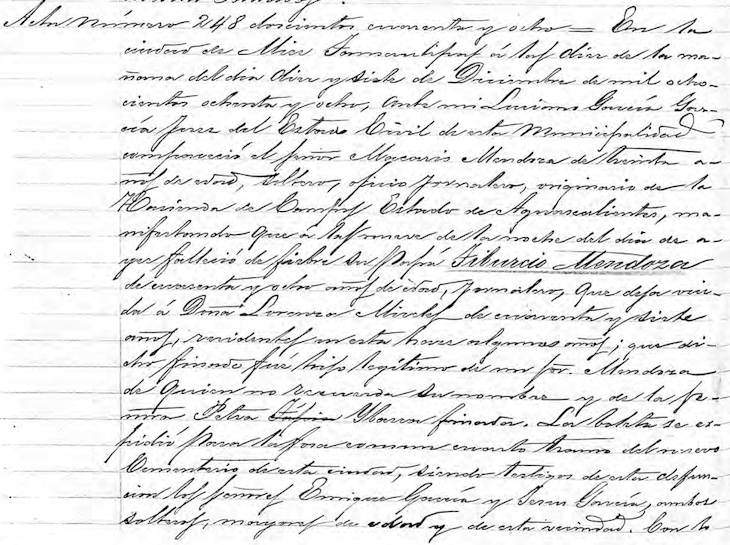 Acta Número 248 doscientos cuarenta y ocho = En la
ciudad de Mier Tamaulipas á las diez de la ma-
ñana del dia diez y siete de Diciembre de mil ocho-
cientos ochenta y ocho, ante mi Luciano García Gar-
cía Juez del Estado Civil de esta Municipalidad
compareció el Señor Macario Mendoza de treinta a-
ños de edad, soltero, oficio jornalero, originario de la
Hacienda de Campos Estado de Aguascalientes, ma-
nifestando que á las nueve de la noche del dia de a-
yer falleció de fiebre su papá Tiburcio Mendoza
de cuarenta y ocho años de edad, jornalero, que deja viu-
da á Doña Lorenza Mireles de cuarenta y siete
años, residentes en esta hace algunos años; que di-
cho finado fué hijo legítimo de un Sor. Mendoza
de quien no recuerda su nombre y de la fi-
nada Petra Ybarra finada. La boleta se es-
pidió para la fosa comun cuarto tramo del nuevo
Cementerio de esta ciudad, siendo testigos de esta defun-
cion los Señores Enrique García y Jesus García, ambos
solteros, mayores de edad y de esta vecindad. Con lo